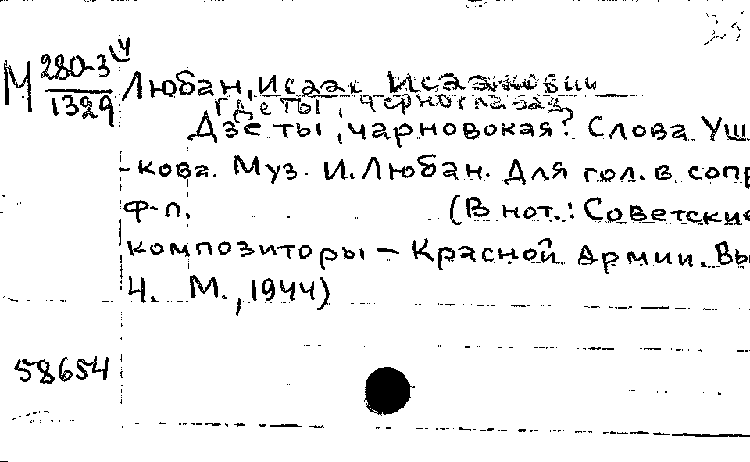 М 280-3
1329
Любан, Исаак Исаакович
Где ты, черноглазая,
Дзе ты, чарновокая? Слова Уш
-кова. Муз. И. Любан. Для гол. в сопр
ф-п. (В нот.: Советские
композиторы - Красной Армии. Вы
4. М., 1944)
58654